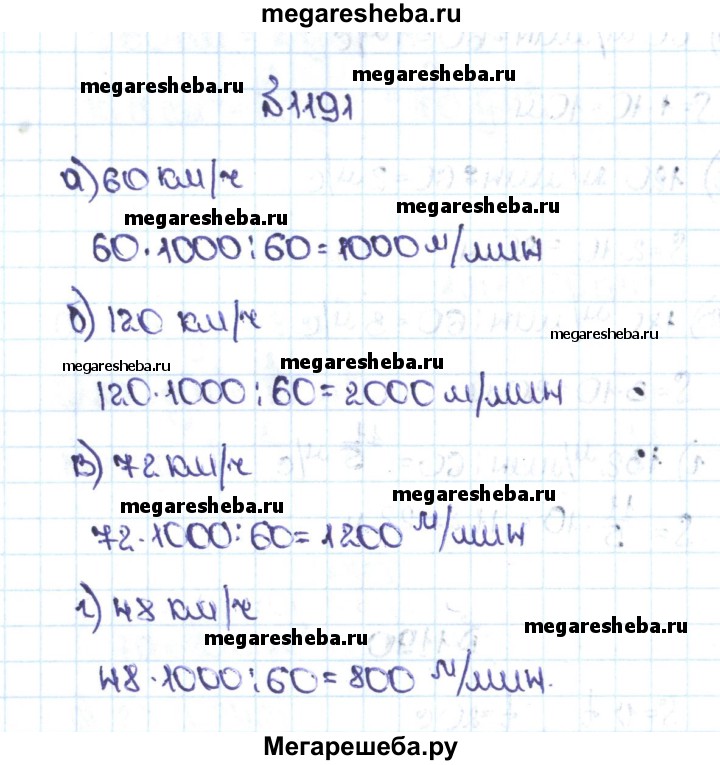 megaresheba.ru
megaresheba.ru
megaresheba.ru
№1191
а) 60 км/ч
megaresheba.ru
megaresheba.ru
60·1000:60=1000 м/мин
б) 120 км/ч
megaresheba.ru
megaresheba.ru
megaresheba.ru
120·1000:60=2000 м/мин
в) 72 км/ч
megaresheba.ru
megaresheba.ru
72·1000:60=1200 м/мин
г) 48 км/ч
megaresheba.ru
megaresheba.ru
48·1000:60=800 м/мин.
Мегарешеба.ру